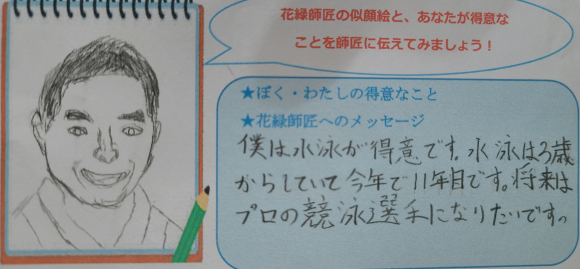 花緑師匠の似顔絵と、あなたが得意な
ことを師匠に伝えてみましょう！
★ぼく・わたしの得意なこと
★花緑師匠へのメッセージ
僕は水泳が得意です。水泳は3歳
からしていて今年で11年目です。将来は
プロの競泳選手になりたいですっ